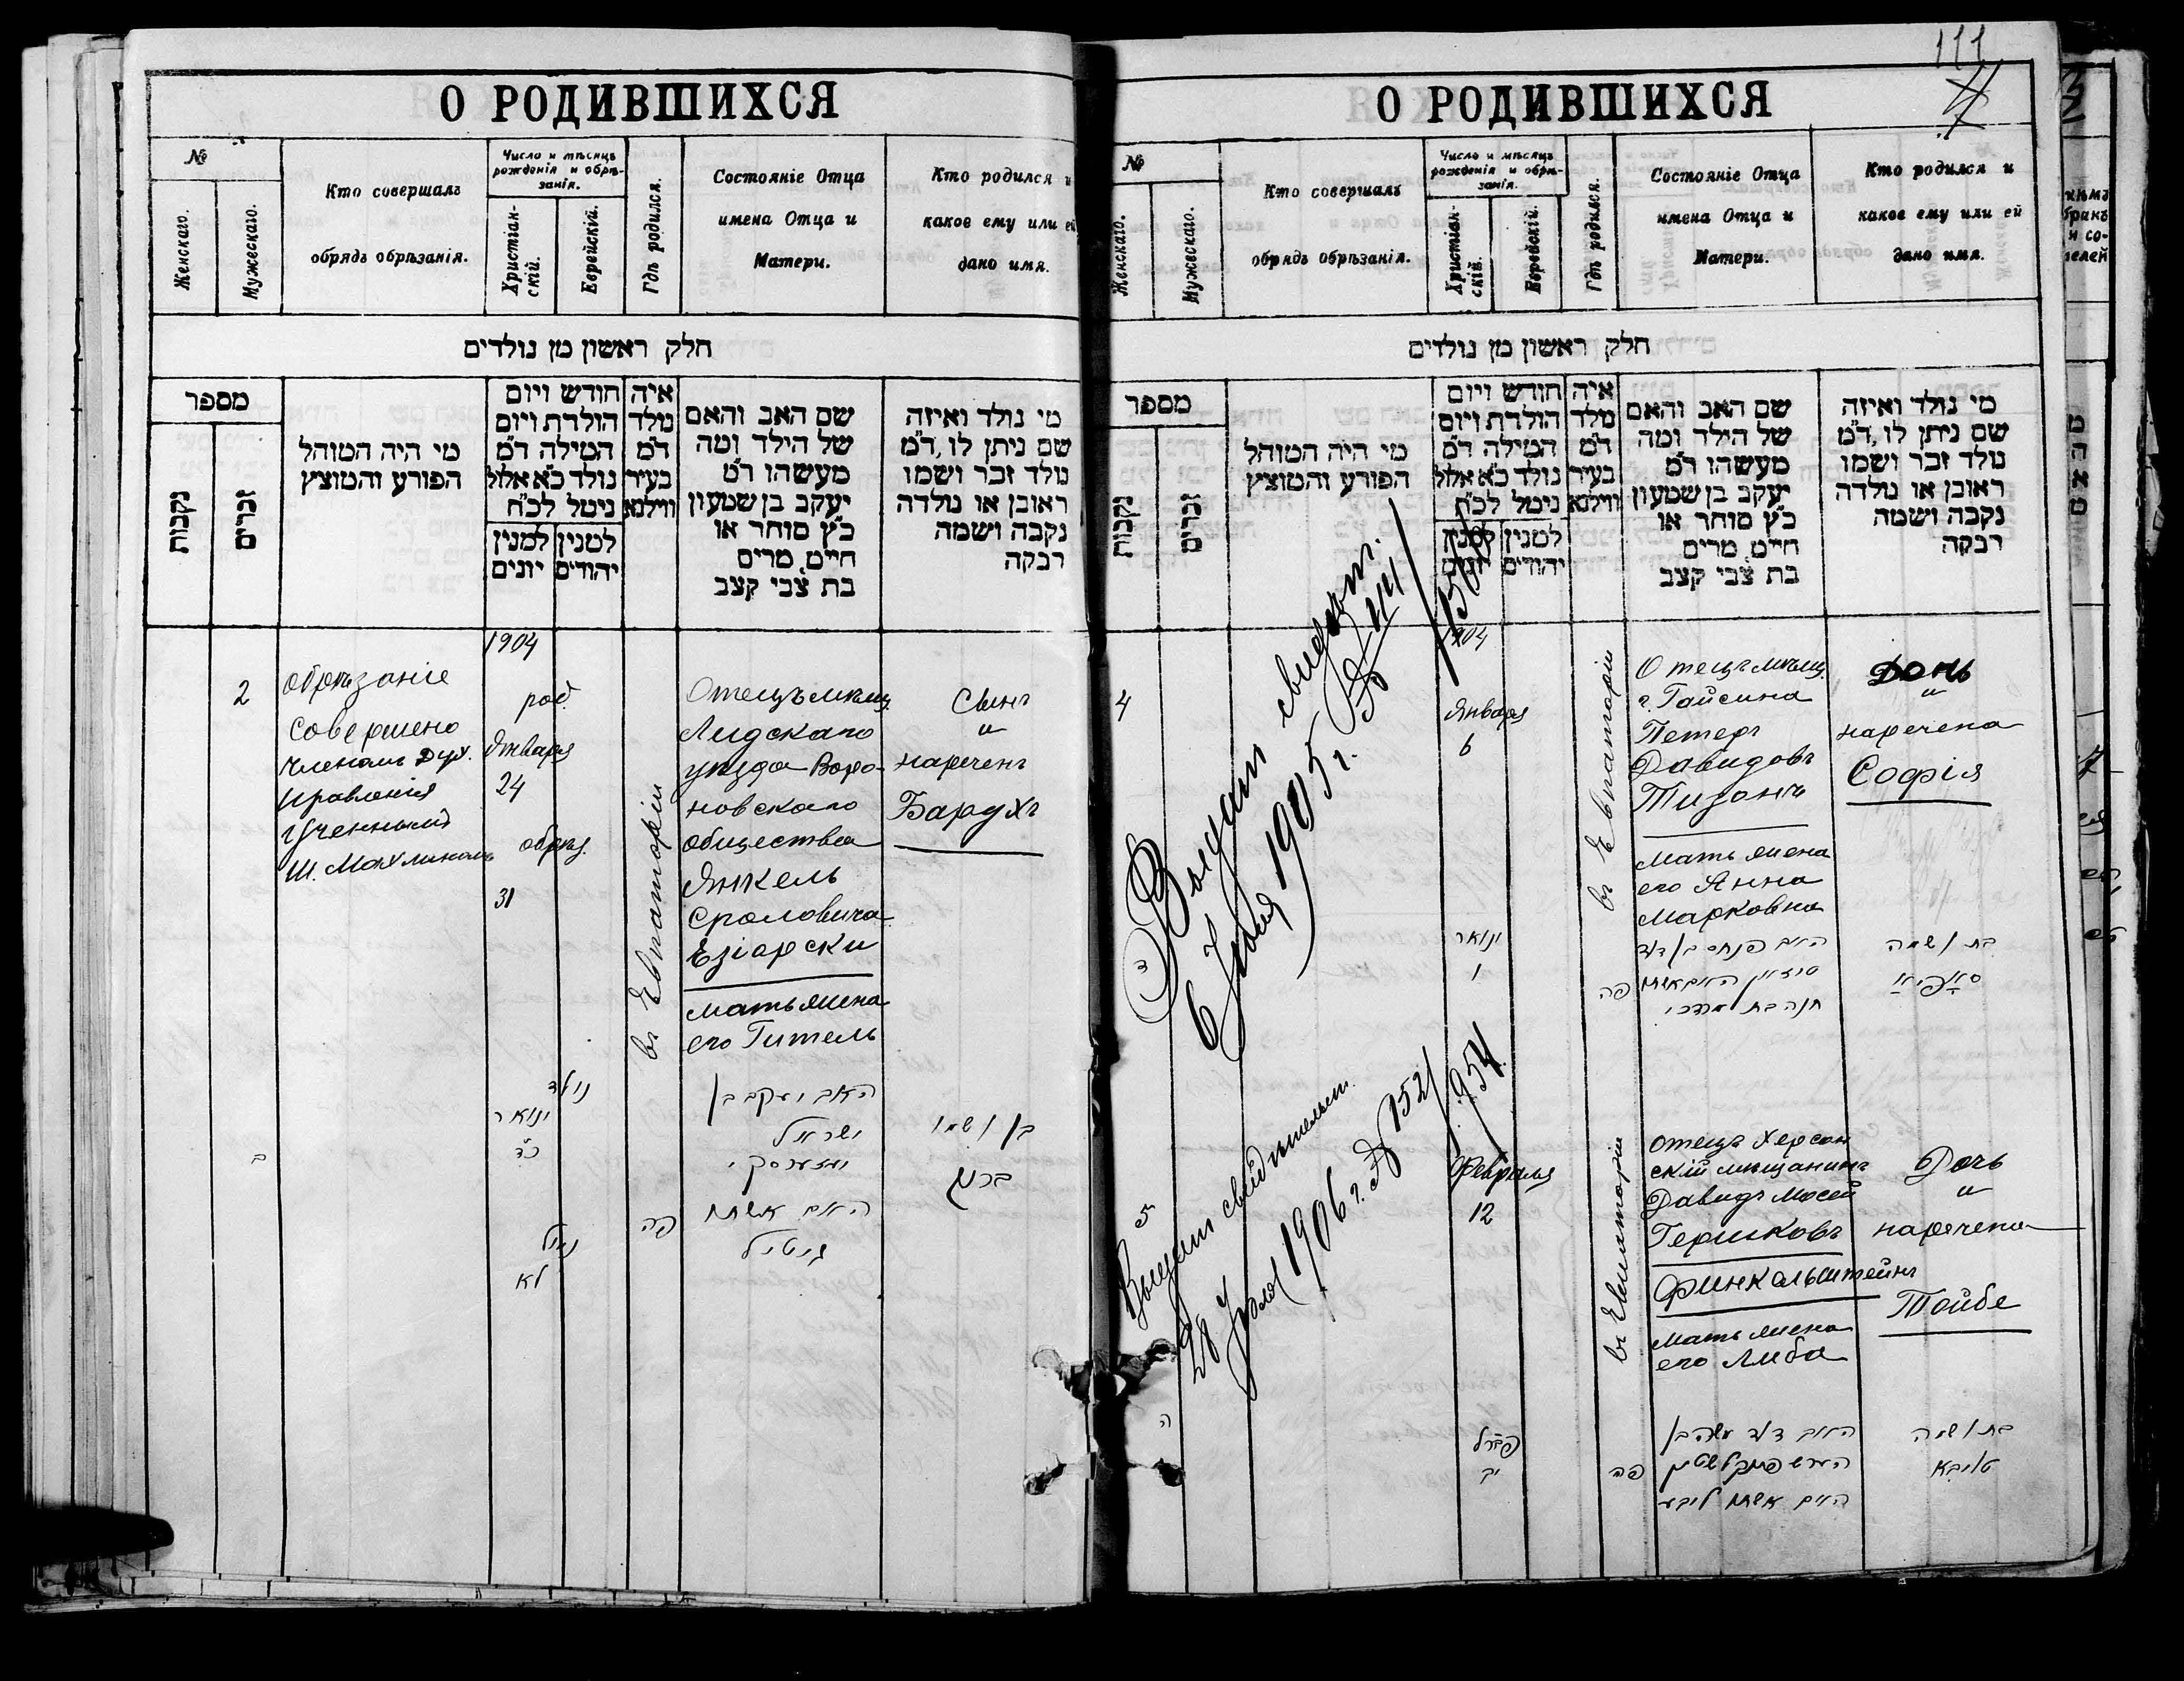 О РОДИВШИХСЯ
№
Женскаго.
Мужескаго.
Кто совершалъ
обрядъ обрѣзанія.
Число и мѣсяцъ
рожденія и обрѣ-
занія.
Христіан-
скій.
Еврейскій.
Гдѣ родился.
Состояніе Отца
имена Отца и
Матери.
Кто родился и
какое ему или ей
дано имя.
חלק ראשון מן נולדים
מספר
נקבות
זכרים
מי היה המוהל
הפורע והמוצץ
חודש ויום
הולדת ויום
המילה ד״מ
נולד כ״א אלול
נימל לכ״ח
למנין יונים
למנין יהודים
איה
נולד
ד״מ
בעיר
ווילנא
שם האב והאם
של הילד ומה
מעשהו ד״מ
יעקב בן שמעון
כ״ץ סוחר או
חייט מרים
בת צבי קצב
מי נולד ואיזה
שם ניתן לו, ד״מ
נולד זכר ושמו
ראובן או נולדה
נקבה ושמה
רבקה
1904
2
обрѣзаніе
совершено
членомъ Дух.
правленія
Ученный
Ш. Махлиномъ
род.
Января
24
обрѣз.
31
въ Евпаторіи
Отецъ мѣщ.
Лидскаго
уѣзда Воро-
новскаго
общества
Янкель
Сроловичъ
Езіарски
мать жена
его Гитель
Сынъ
"
нареченъ
Барухъ
ב
נולד
ינואר
כד
נימול
לא
פה
האב יעקב בן
ישראל
האם אשתו
גיטיל
בן ושמו
ברוך
111
О РОДИВШИХСЯ
№
Женскаго.
Мужескаго.
Кто совершалъ
обрядъ обрѣзанія.
Число и мѣсяцъ
рожденія и обрѣ-
занія.
Христіан-
скій.
Еврейскій.
Гдѣ родился.
Состояніе Отца
имена Отца и
Матери.
Кто родился и
какое ему или ей
дано имя.
חלק ראשון מן נולדים
מספר
נקבות
זכרים
מי היה המוהל
הפורע והמוצץ
חודש ויום
הולדת ויום
המילה ד״מ
נולד כ״א אלול
נימל לכ״ח
למנין יונים
למנין יהודים
איה
נולד
ד״מ
בעיר
ווילנא
שם האב והאם
של הילד ומה
מעשהו ד״מ
יעקב בן שמעון
כ״ץ סוחר או
חייט מרים
בת צבי קצב
מי נולד ואיזה
שם ניתן לו, ד״מ
נולד זכר ושמו
ראובן או נולדה
נקבה ושמה
רבקה
1904
4
Выдано свидѣт.
6 1905 г. №
Января
6
въ Евпаторіи
Отецъ мѣщ.
г. Гайсина
Петеръ
Давидовъ
Тизонъ
мать жена
его Анна
Марковна
Дочь
"
наречена
Софія
ד
ינואר
ו
פה
האב פנחס בן דוד
טיזאן האם אשתו
חנה בת מרדכי
בת ושמה
סאפיא
5
Выдано свидѣтельст.
28 1906 г. № 152/954
Февраля
12
въ Евпаторіи
отецъ Херсон
скій мѣщанинъ
Давидъ Мосей
Гершковъ
Финкальштейнъ
мать жена
его Либа
Дочь
"
наречена
Тойбе
ה
יב
פה
האב דוד משה בן
האם אשתו ליבע
בת ושמה
טויבא